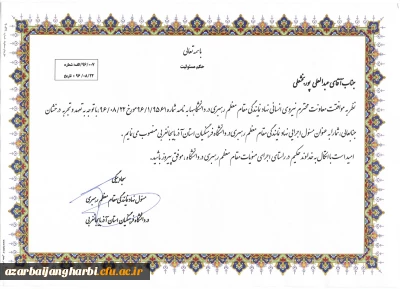 باسمه تعالی
حکم مسئولیت
۹۶/۰۰۷/الف شماره
۹۶/۰۸/۲۲ : تاریخ
جناب آقای عبدالعلی پورنخشعلی
نظر به موافقت معاونت محترم نیروی انسانی نهاد نمایندگی مقام معظم رهبری در دانشگاهها به نامه شماره ۹۶/۱/۹۵۶۱ مورخ ۹۶/۰۸/۲۲ با توجه به تعهد و تجربه درخشان
جنابعالی، شما را به عنوان مسئول اجرایی نهاد نمایندگی مقام معظم رهبری در دانشگاه فرهنگیان استان آذربایجانغربی منصوب می نمایم.
امید است با اتکال به خداوند حکیم در راستای اجرای منویات مقام معظم رهبری در دانشگاه، موفق و پیروز باشید.
مسئول نهاد نمایندگی مقام معظم رهبری
در دانشگاه فرهنگیان استان آذربایجانغربی
azarbaijangharbi.cfu.ac.ir